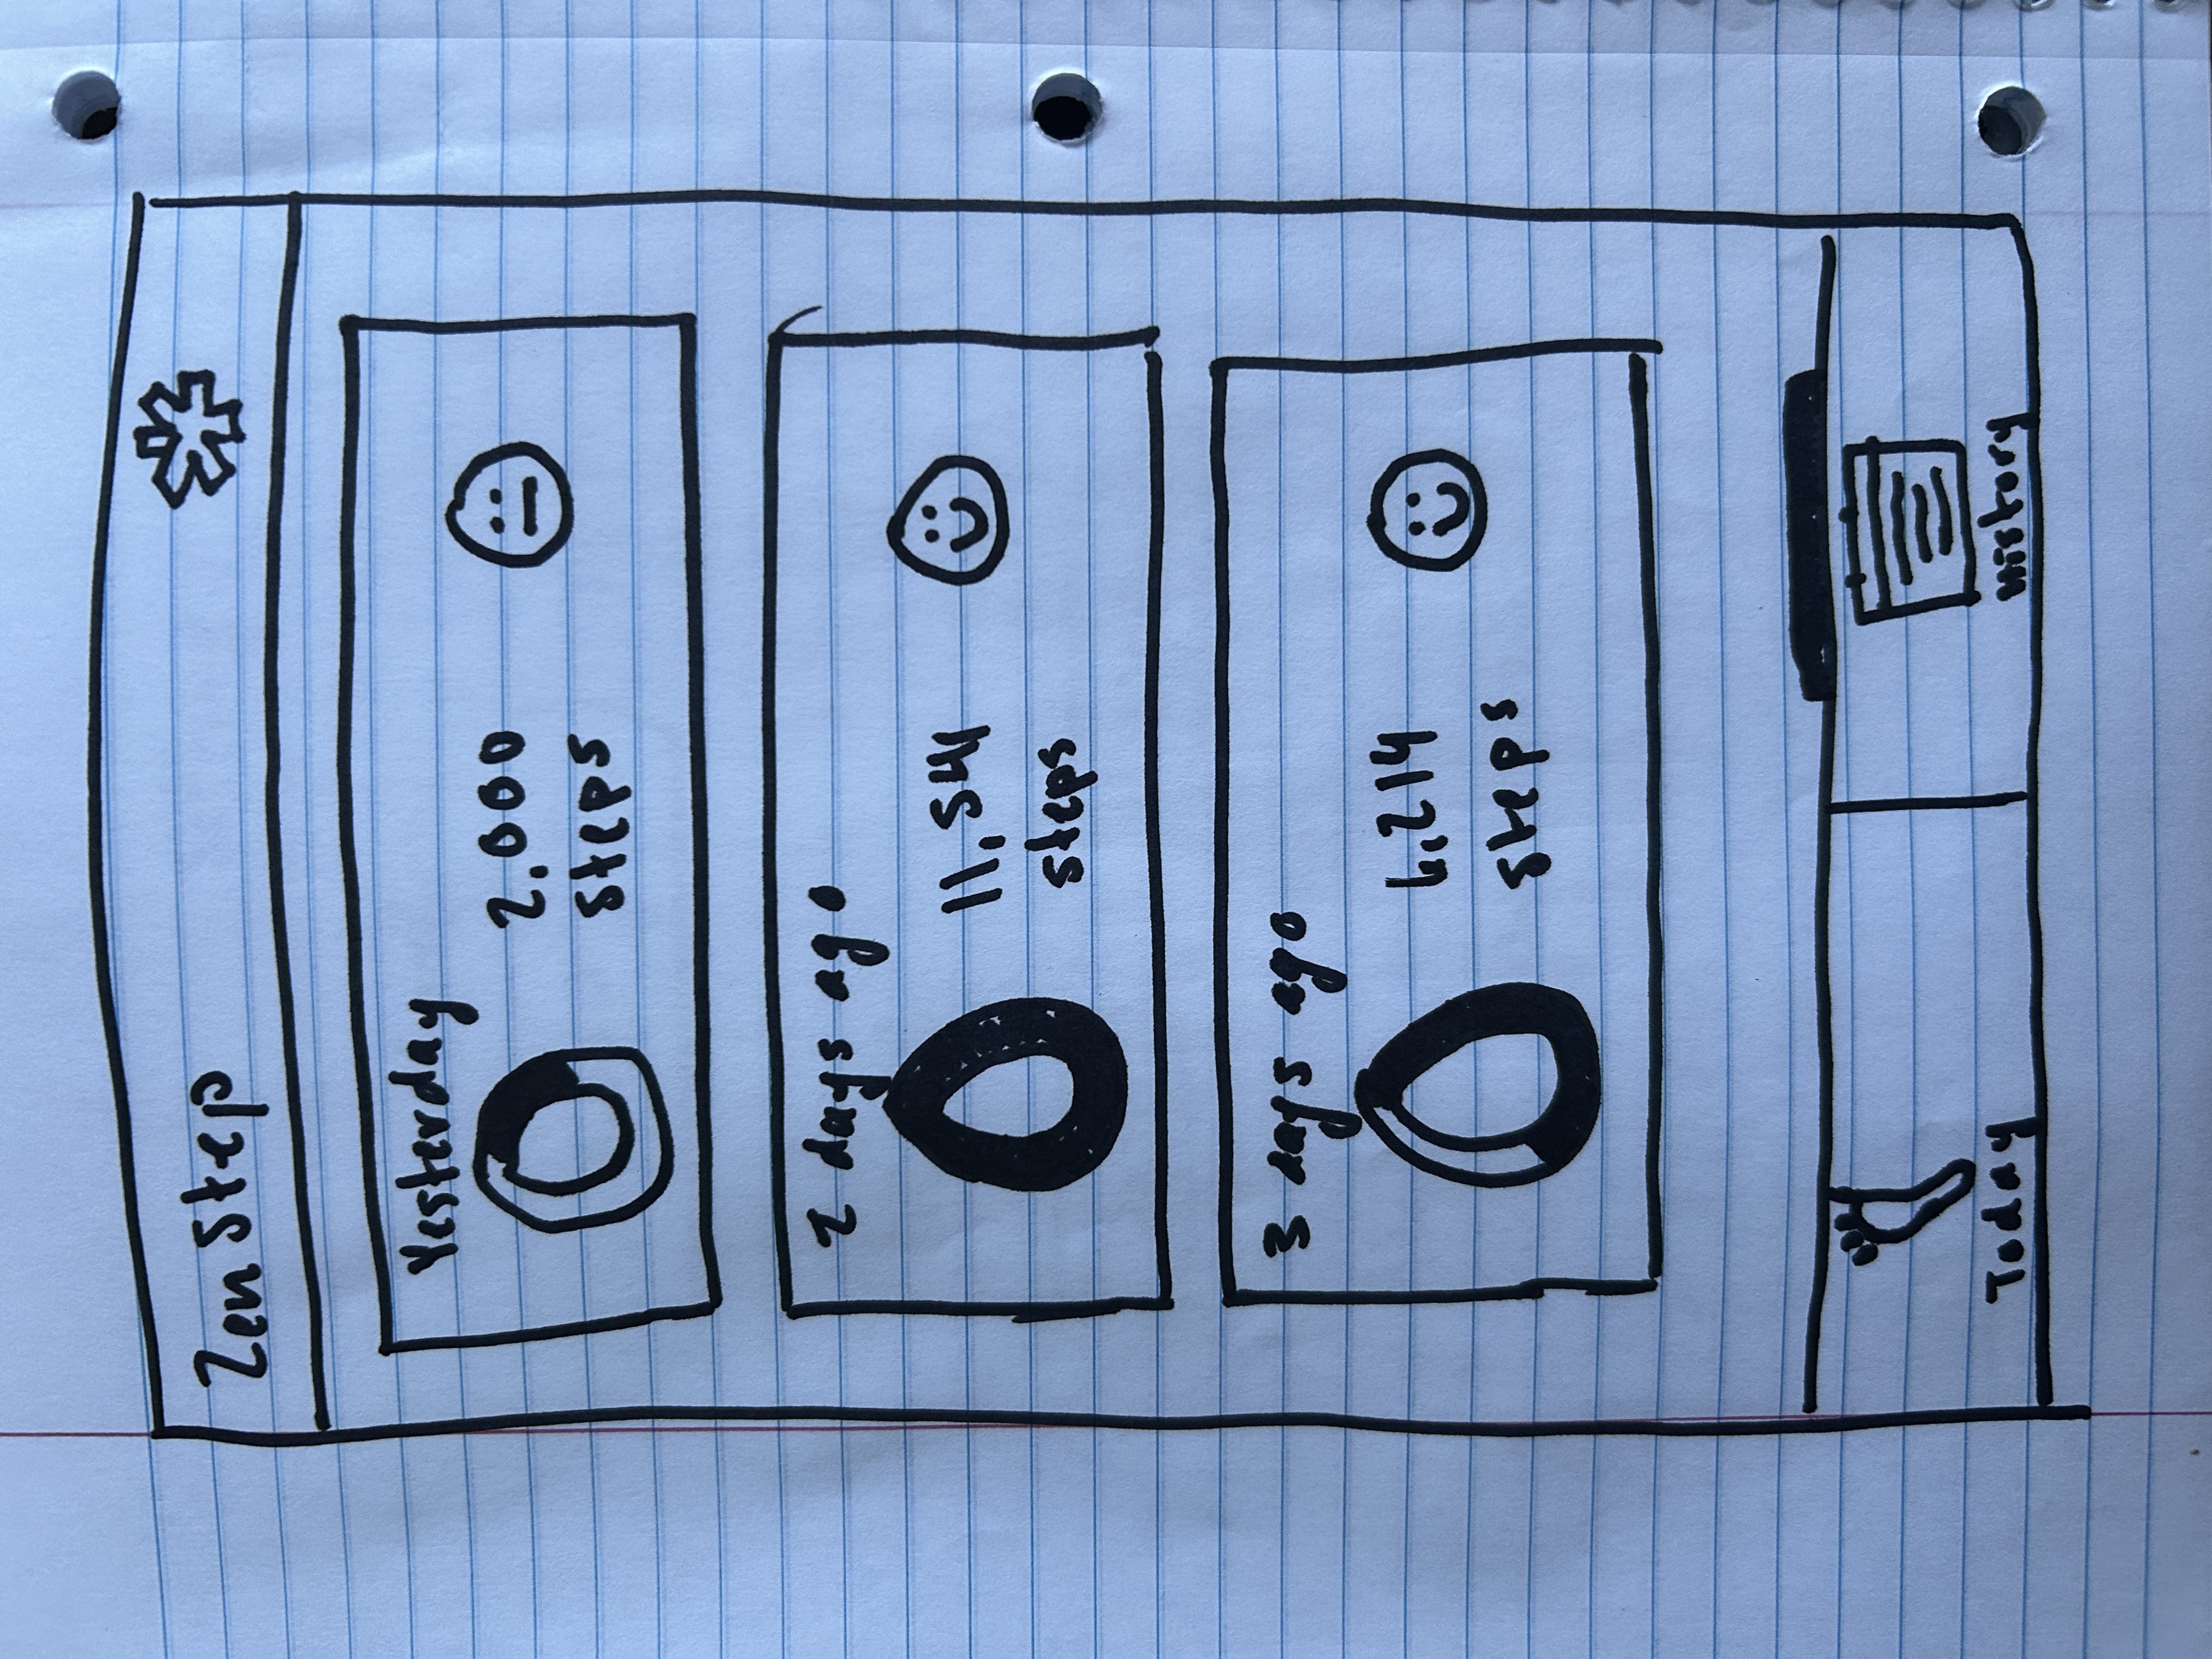 Zen Step
Yesterday
2,000
steps
2 days ago
11,541
steps
3 days ago
6,214
steps
Today
History